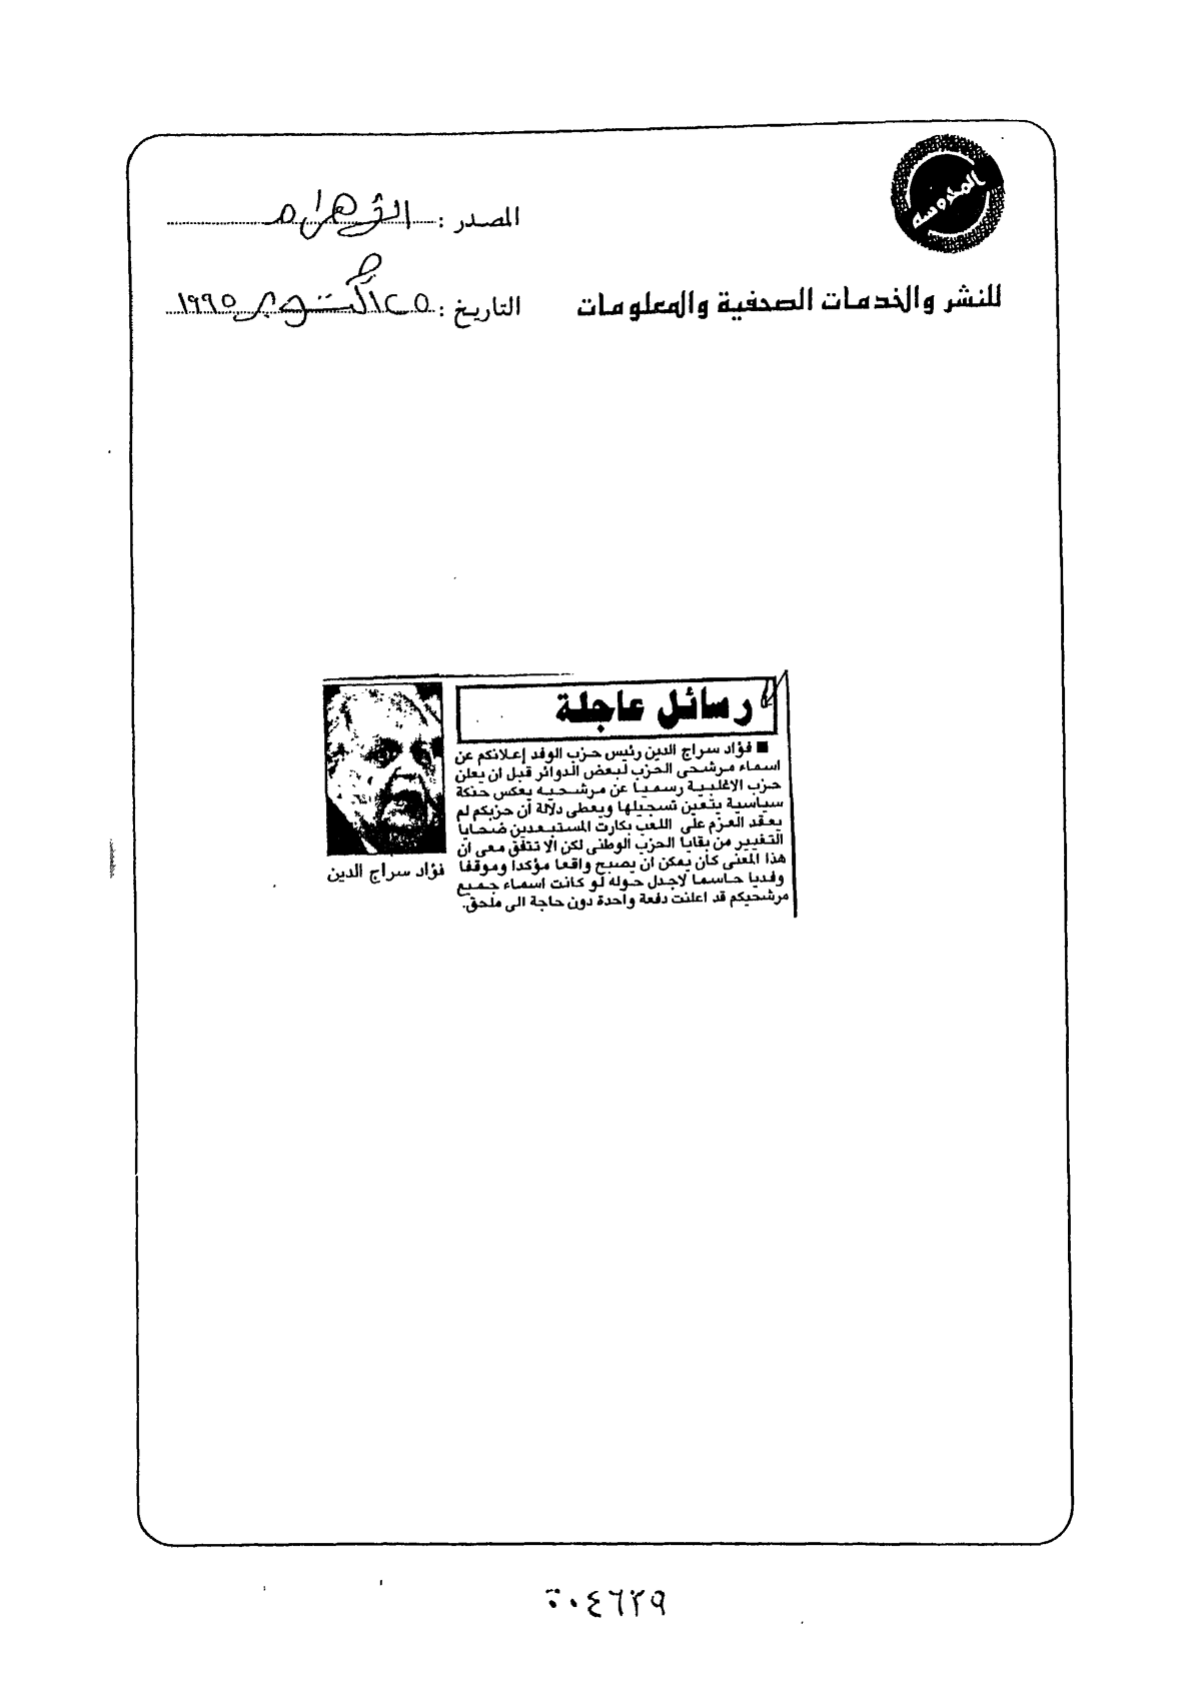 المحروسة
المصدر : الأهرام
للنشر والخدمات الصحفية والمعلومات
التاريخ : ٢٥ أكتوبر ١٩٩٥
رسائل عاجلة
■ فؤاد سراج الدين رئيس حزب الوفد إعلانكم عن
اسماء مرشحى الحزب لبعض الدوائر قبل ان يعلن
حزب الاغلبية رسميا عن مرشحيه يعكس حنكة
سياسية يتعين تسجيلها ويعطى دلالة أن حزبكم لم
يعقد العزم على اللعب بكارت المستبعدين ضحايا
التغيير من بقايا الحزب الوطنى لكن الا تتفق معى ان
هذا المعنى كان يمكن ان يصبح واقعا مؤكدا وموقفا
وفديا حاسما لاجدل حوله لو كانت اسماء جميع
مرشحيكم قد اعلنت دفعة واحدة دون حاجة الى ملحق.
فؤاد سراج الدين